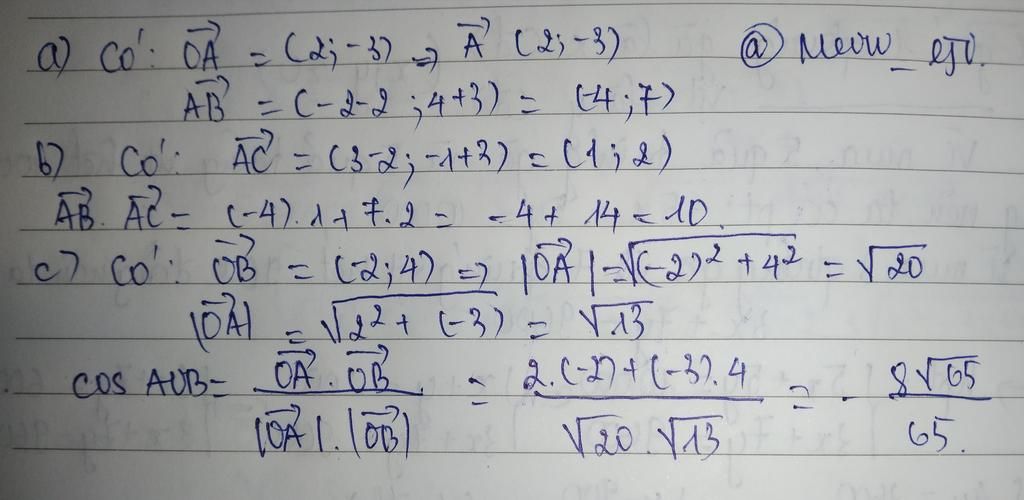 a) Có: $\overrightarrow{OA}$ = (2; -3) => $\overrightarrow{A}$ (2; -3) @ Meow_
$\overrightarrow{AB}$ = (-2-2 ; 4+3) = (-4; 7)
b) Có: $\overrightarrow{AC}$ = (3-2; -1+3) = (1; 2)
$\overrightarrow{AB}$. $\overrightarrow{AC}$ = (-4).1 + 7.2 = -4 + 14 = 10.
c) Có: $\overrightarrow{OB}$ = (-2; 4) => |$\overrightarrow{OA}$| = $\sqrt{(-2)^2 + 4^2}$ = $\sqrt{20}$
|$\overrightarrow{OA}$| = $\sqrt{2^2 + (-3)}$ = $\sqrt{13}$
cos AOB = $\frac{\overrightarrow{OA} . \overrightarrow{OB}}{|\overrightarrow{OA}| . |\overrightarrow{OB}|}$ = $\frac{2.(-2) + (-3).4}{\sqrt{20} . \sqrt{13}}$ = - $\frac{8\sqrt{65}}{65}$.